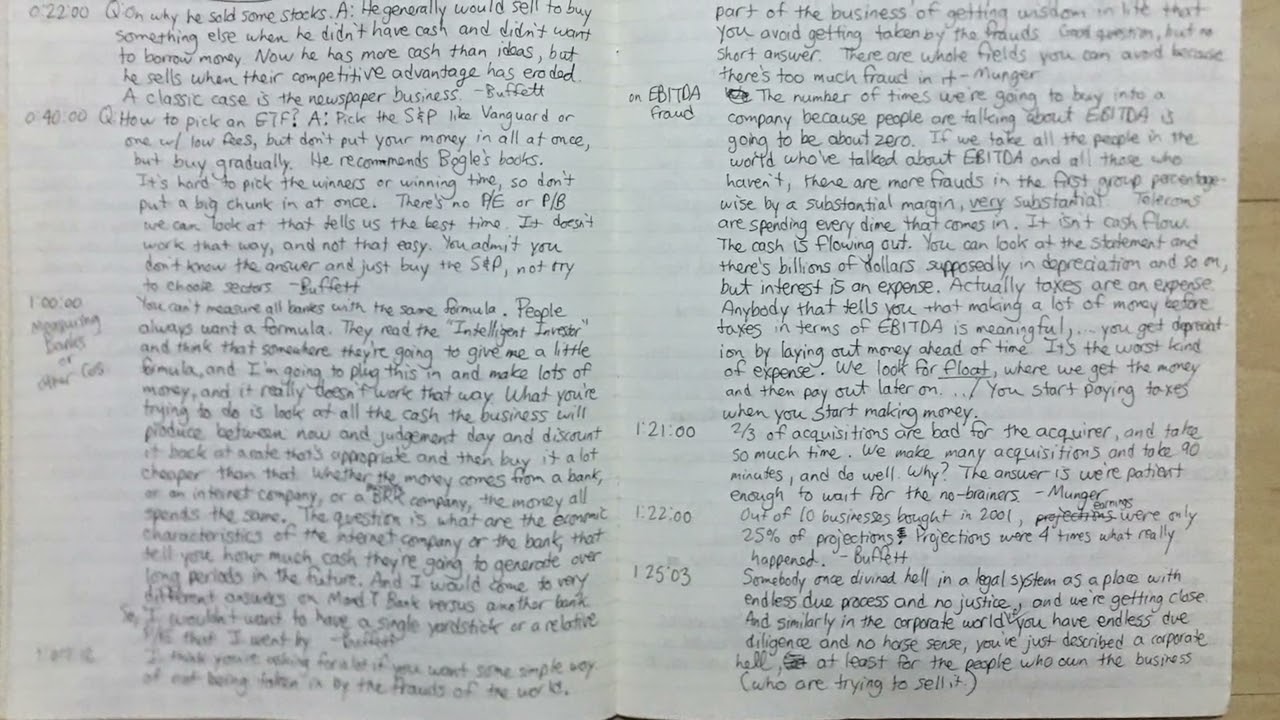 0:22:00 Q: On why he sold some stocks. A: He generally would sell to buy
something else when he didn't have cash and didn't want
to borrow money. Now he has more cash than ideas, but
he sells when their competitive advantage has eroded.
A classic case is the newspaper business. -Buffett
0:40:00 Q: How to pick an ETF? A: Pick the S&P like Vanguard or
one w/ low fees, but don't put your money in all at once,
but buy gradually. He recommends Bogle's books.
It's hard to pick the winners or winning time, so don't
put a big chunk in at once. There's no P/E or P/B
we can look at that tells us the best time. It doesn't
work that way, and not that easy. You admit you
don't know the answer and just buy the S&P, not try
to choose sectors -Buffett
1:00:00 You can't measure all banks with the same formula. People
Measuring
Banks
or
other Cos
always want a formula. They read the "Intelligent Investor"
and think that somewhere they're going to give me a little
formula, and I'm going to plug this in and make lots of
money, and it really doesn't work that way. What you're
trying to do is look at all the cash the business will
produce between now and judgement day and discount
it back at a rate that's appropriate and then buy it a lot
cheaper than that. Whether the money comes from a bank,
or an internet company, or a BRK company, the money all
spends the same. The question is what are the economic
characteristics of the internet company or the bank, that
tell you how much cash they're going to generate over
long periods in the future. And I would come to very
different answers on Bank versus another bank.
So, I wouldn't want to have a single yardstick or a relative
P/E that I went by -Buffett
I think you're asking for a lot if you want some simple way
of not being taken in by the frauds of the world.
part of the business of getting wisdom in life that
you avoid getting taken by the frauds. Good question, but no
short answer. There are whole fields you can avoid because
there's too much fraud in it - Munger
on EBITDA
fraud
The number of times we're going to buy into a
company because people are talking about EBITDA is
going to be about zero. If we take all the people in the
world who've talked about EBITDA and all those who
haven't, there are more frauds in the first group percentage-
wise by a substantial margin, very substantial. Telecoms
are spending every dime that comes in. It isn't cash flow.
The cash is flowing out. You can look at the statement and
there's billions of dollars supposedly in depreciation and so on,
but interest is an expense. Actually taxes are an expense.
Anybody that tells you that making a lot of money before
taxes in terms of EBITDA is meaningful,... you get depreciat-
ion by laying out money ahead of time. It's the worst kind
of expense. We look for float, where we get the money
and then pay out later on. .../ You start paying taxes
when you start making money.
1:21:00 2/3 of acquisitions are bad for the acquirer, and take
so much time. We make many acquisitions and take 90
minutes, and do well. Why? The answer is we're patient
enough to wait for the no-brainers. - Munger
1:22:00 Out of 10 businesses bought in 2001, projections earnings were only
25% of projections. Projections were 4 times what really
happened. - Buffett
1:25:03 Somebody once divined hell in a legal system as a place with
endless due process and no justice, and we're getting close.
And similarly in the corporate world you have endless due
diligence and no horse sense, you've just described a corporate
hell, at least for the people who own the business
(who are trying to sell it.)